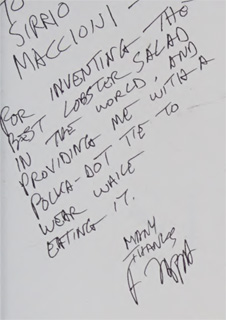 TO
SIRIO
MACCIONI -
FOR INVENTING THE
BEST LOBSTER SALAD
IN THE WORLD, AND
PROVIDING ME WITH A
POLKA-DOT TIE TO
WEAR WHILE
EATING IT.
MANY
THANKS